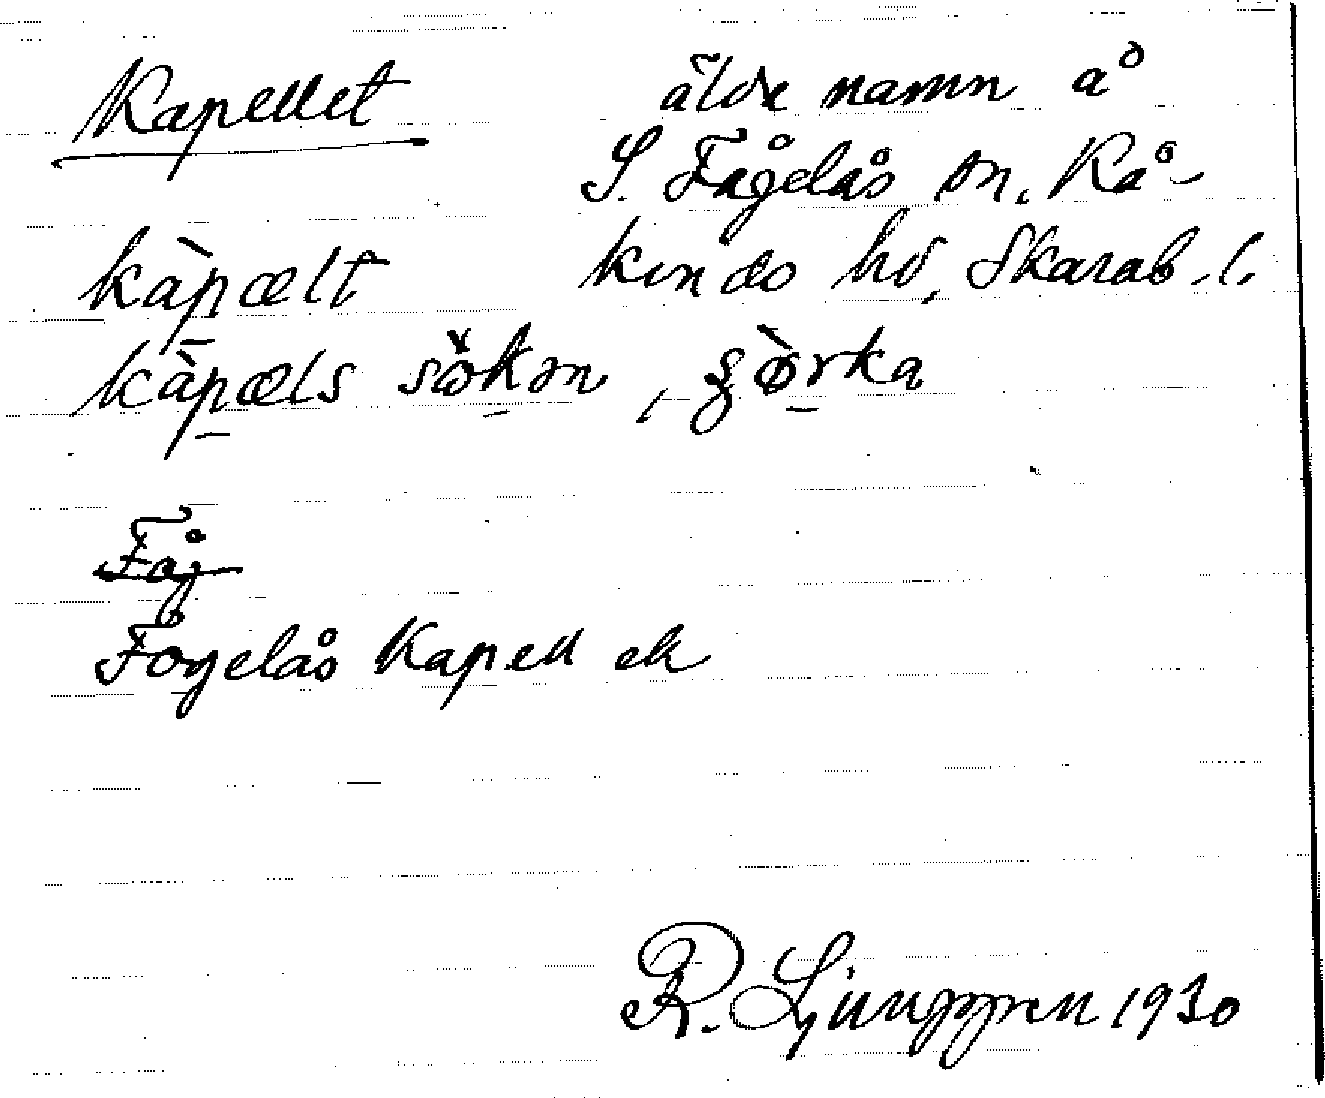 Kapellet
äldre namn å
S. Fågelås sn. Kå-
kinds hd, Skarab. l.
kàpælt
kàpæls sökən, ʂòrka
Fåg
Fogelås Kapell ek
R. Ljunggren 1930